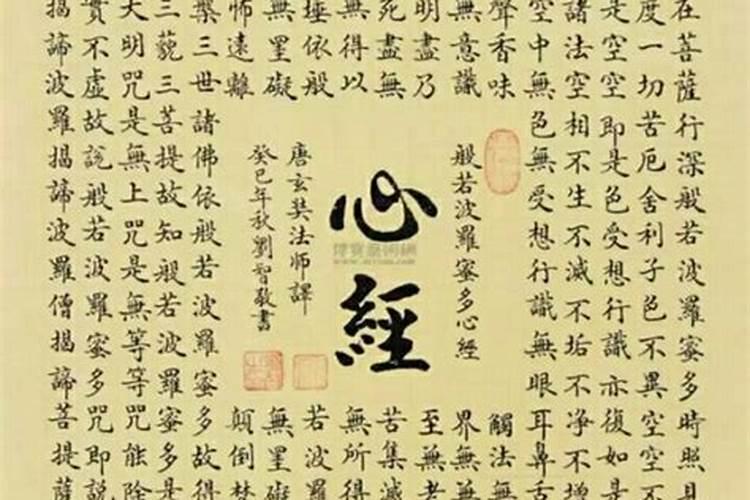 在菩薩行深般若波羅蜜多時照見
度一切苦厄舍利子色不異空空不
是空空即是色受想行識亦復如是
諸法空相不生不滅不垢不淨不增
空中無色無受想行識無眼耳鼻舌
聲香味
觸法無
無意識
界無無
明盡乃
至無老
死盡無
苦集滅
無得以
無所得
埵依般
若波羅
無罣礙
無罣礙
怖遠離
顛倒
般若波羅蜜多心經
心經
唐玄奘法師譯
癸巳年秋劉智敬書
槃三世諸佛依般若波羅蜜多故得
三藐三菩提故知般若波羅蜜多是
大明咒是無上咒是無等等咒能除
實不虛故說般若波羅蜜多咒即說
揭諦波羅揭諦波羅僧揭諦菩提薩